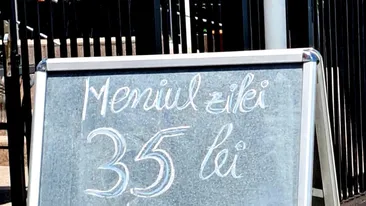 Meniul zilei
35 lei